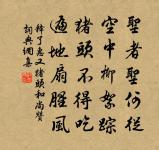 聖者聖何從
空中柳絮踪
猪頭不得吃
遍地扇腥風
釋了惠又猪頭和尚贊
詞典網集